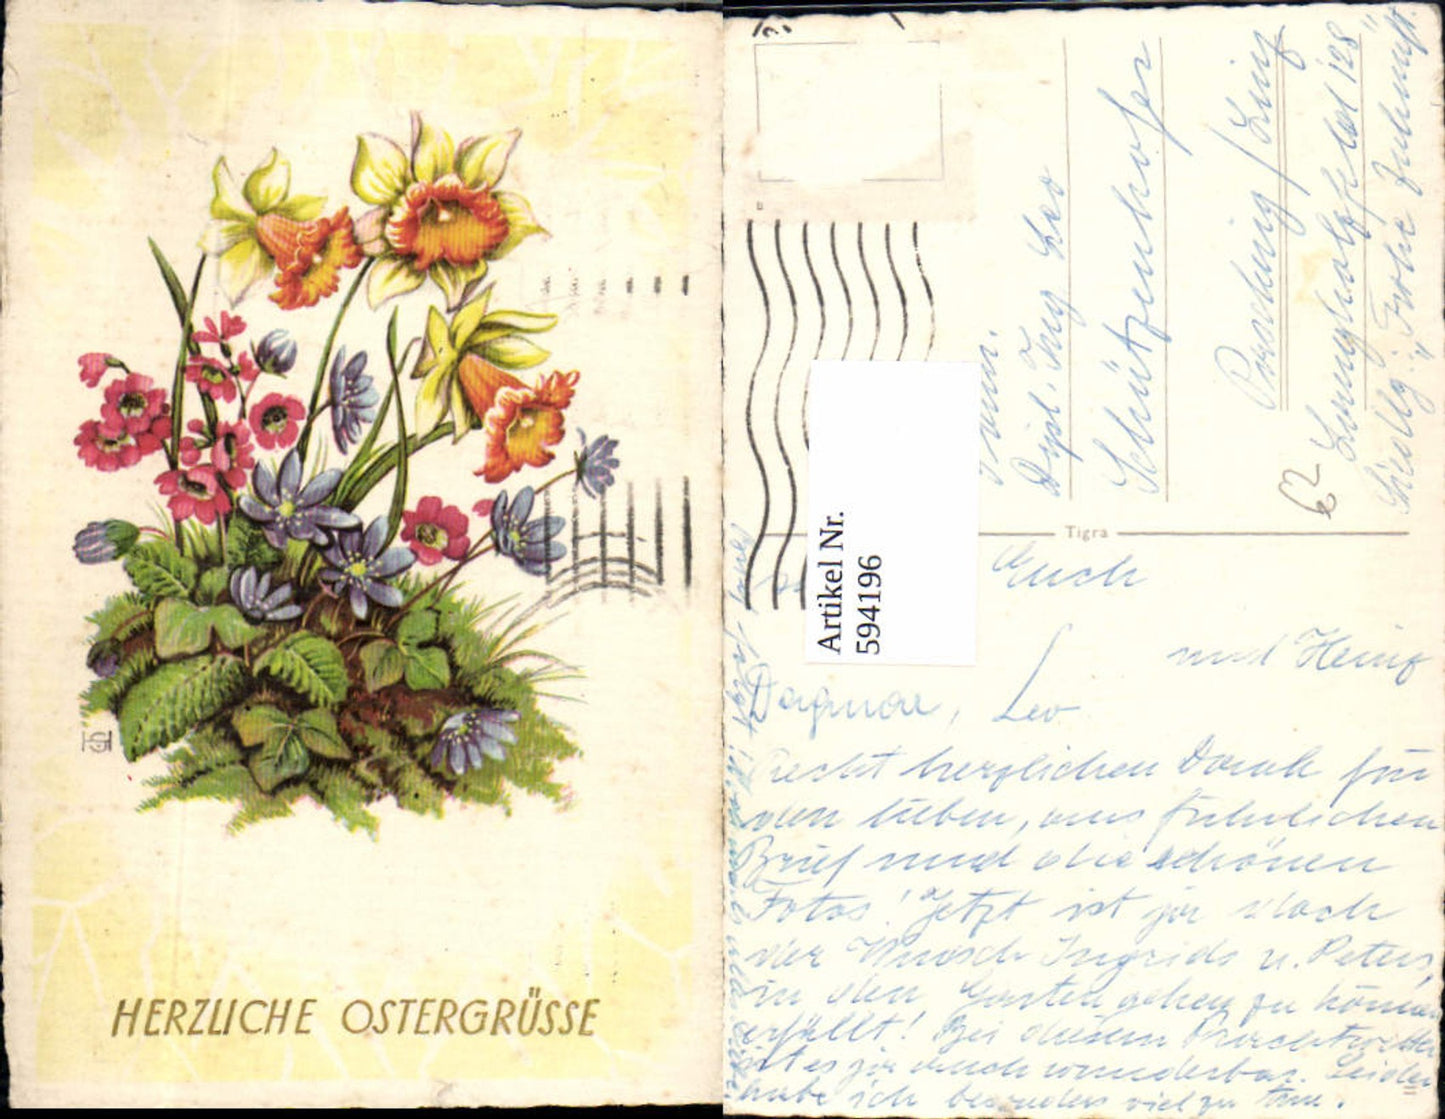 HERZLICHE OSTERGRÜSSE
Artikel Nr.
594196
Tigra
Dipl. Ing Leo
Schützenhofer
Pasching / Linz
Langholzfeld 128
Siedlg. "Frohe Zukunft"
62
Euch
und Heinz
Dagmar, Leo
Recht herzlichen Dank für
den lieben, ausführlichen
Brief und die schönen
Fotos! Jetzt ist ja doch
der Wunsch Ingrids u. Peters,
in den Garten gehen zu können
erfüllt! Bei diesem Prachtwetter
ist es ja auch wunderbar. Leider
habe ich besonders viel zu tun.